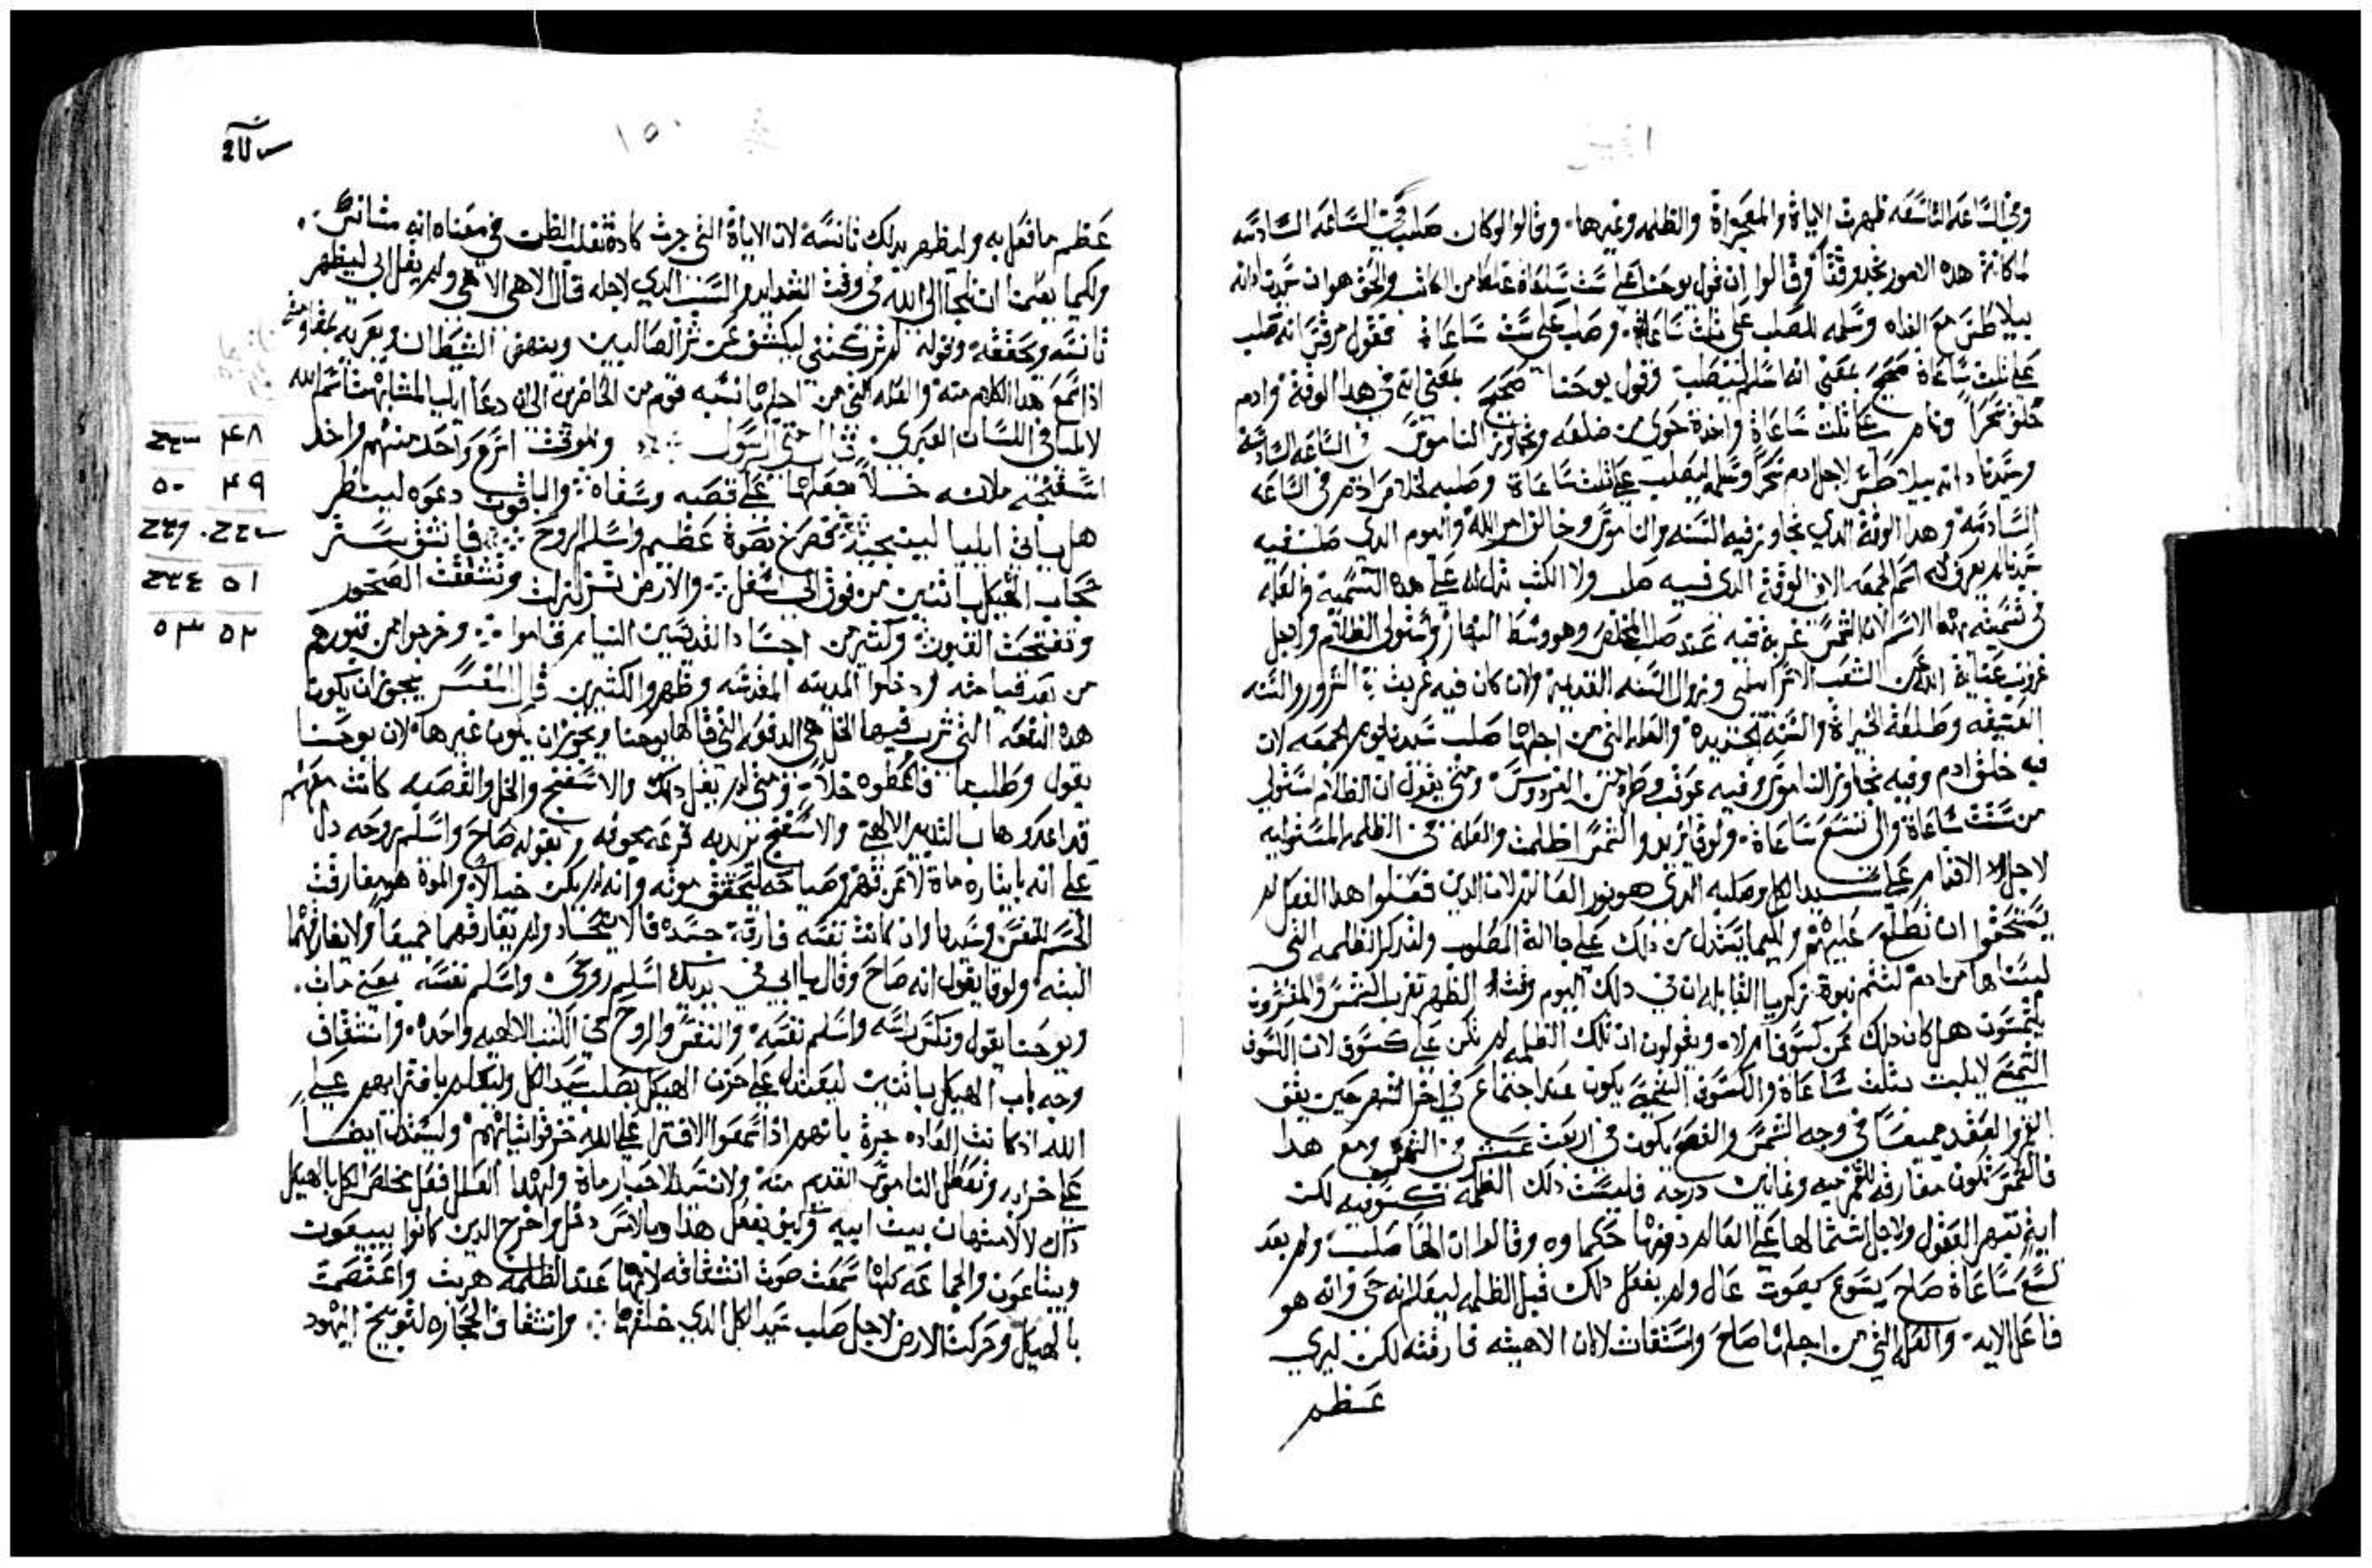 وفي الساعه التاسعه ظهرت الاياة والمعجزاة والظلمه وغيرها وقالوا لو كان صلب في الساعه السادسه
لما كانت هذه الامور وقالوا ان قول يوحنا علي ست ساعاة غلط من الكاتب والحق هو ان سيدنا دانه
بيلاطس مع الغداه وسلمه للصلب علي ثلث ساعاة وصلب علي ست ساعاة فقول مرقس انه صلب
علي ثلث ساعاة صحيح بمعني انه اسلم ليصلب وقول يوحنا صحيح بمعني انه في هذا الوقت وادم
خلق سحرا ونام علي ثلث ساعاة واخدة حوي من ضلعه وتجاوز الناموس في الساعه السادسه
وسيدنا دانه بيلاطس لاجل ادم سحرا وسلمه ليصلب علي ثلث ساعاة وصلبه في الساعه
السادسه وهذا الوقت الدي تجاوز فيه السنه والناموس وخالف امر الله واليوم الدي صلب فيه
سيدنا لم يعرف له اسم الجمعه الا في الوقت الدي فيه صلب ولا الكتب تدل له علي هذه التسميه والعله
في تسميته بهذا الاسم لان الشمس غربة فيه عند صلب المخلص وهو وسط النهار واستولي الظلام ولاجل
غروب عناية الله عن الشعب الاسراييلي وزوال السنه القديمه ولان كان فيه غربت الشرور والسنه
العتيقه وطلعة الخيراة والسنه الجديده والعله التي من اجلها صلب سيدنا يوم الجمعه لان
فيه خلق ادم وفيه تجاوز الناموس وفيه عوقب وطرد من الفردوس ومتي يقول ان الظلام استولي
من ست ساعاة والي تسع ساعاة ولوقا يزيد والشمس اظلمت والعله في الظلمه المستوليه
لاجل الاقدام علي سيد الكل وصلبه الدي هو نور العالم لان الدين فعلوا هذا الفعل لم
يستحقوا ان تطلع عليهم وليما يستدل من ذلك علي جلالة المصلوب ولتدكر الظلمه التي
لبسناها من ادم لتتم نبوة زكريا القايله ان في ذلك اليوم وقت الظهر تغرب الشمس والمفسرون
يلتمسون هل كان دلك عن كسوف ام لا ويقولون ان تلك الظلمه لم تكن علي كسوف لان الكسوف
الشمسي لا يلبث ثلث ساعاة والكسوف الشمسي يكون عند اجتماع في اخر الشهر حين يقف
القمر والعقد جميعا في وجه الشمس والفصح يكون في اربعت عشر من الشهر ومع هدا
فالشمس تكون مفارقه للقمر ميه وثمانين درجه فليست دلك الظلمه كسوفيه لكن
ايه تبهر العقول ولاجل اشتمالها علي العالم حكما وه وقالوا ان الها صلب ولم بعد
تسع ساعاة صاح يسوع بصوت عال ولم يفعل دلك قبل الظلمه ليعلم انه حي وانه هو
فاعل الايه والعله التي من اجلها صاح واستغاث لا لان الاهيته فارقته لكن ليري
عظم
١٥٠
عظم ما فعل به وليظهر بدلك تانسه لان الاياة التي جرت كادة تغلب الظن في معناه انه متانس
ولكيما يعلمنا ان نلجا الي الله في وقت الشدايد والسبب الدي لاجله قال الاهي الاهي ولم يقل ابي ليظهر
تانسه وتحققه وقوله لم تركتني ليكشف عن شر الصالبين وينهض الشيطان
ادا سمع هدا الكلام منه والعله التي من اجلها نسبه قوم من الحاضرين الي انه دعا ايليا لمشابهت اسم الله
لايليا في اللسان العبري قال متي الرسول وللوقت اسرع واحد منهم واخد
اسفنجه ملانه خلا وجعلها علي قصبه وسقاه والباقون دعوه لينظر
هل ياتي ايليا لينجيه فصرخ بصوة عظيم واسلم الروح فانشق ستر
حجاب الهيكل باثنين من فوق الي اسفل والارض تزلزلت وتشققت الصخور
وتفتحت القبور وكثير من اجساد القديسين النيام قاموا وخرجوا من قبورهم
من بعد قيامته ودخلوا المدينه المقدسه وظهروا لكثيرين قال المفسر يجوز ان يكون
هده الدفعه التي شرب فيها الخل هي الدفعه التي قالها يوحنا ويجوز ان يكون غيرها لان يوحنا
يقول وطلب ما فاعطوه خلا ومتي لم يقل دلك والاسفنج والخل والقصبه كانت معهم
قد اعدوها بالتدبير الالهي والاسفنج نزيد به وبقوله صاح واسلم روحه دل
علي انه بايثاره ماة لا عن قهر وصياحه ليتحقق موته وانه لم يكن خيالا والموة هو مفارقت
الجسم للنفس وسيدنا وان كانت نفسه فارقة جسده فالاتحاد لم يفارقهما جميعا ولا يفارقهما
البته ولوقا يقول انه صاح وقال يا ابي في يديك اسلم روحي واسلم نفسه بمعني مات
ويوحنا يقول ونكس راسه واسلم نفسه والنفس والروح في الكتب الالهيه واحده وانشقاق
وجه باب الهيكل باثنين ليستدل علي حزن الهيكل بصلب سيد الكل وليعلم بافترايهم علي
الله اد كانت العاده جرة بانهم ادا سمعوا الافترا علي الله خرقوا ثيابهم وليستدل ايضا
علي خرابه وتعطل الناموس القديم منه ولان سيد الاحبار ماة ولهدا العلل فعل مخلص الكل بالهيكل
داك لا لامتهان بيت ابيه وكيف يفعل هذا وبالامس دخل واخرج الدين كانوا يبيعون
ويبتاعون والجماعه كلها سمعت صوت انشقاقه لانها عند الظلمه هربت واعتصمت
بالهيكل وتحركت الارض لاجل صلب سيد الكل الدي خلقها وانشقاق الحجاره لتوبيخ اليهود
٤٨
٤٩ ٥٠
٥١
٥٢ ٥٣